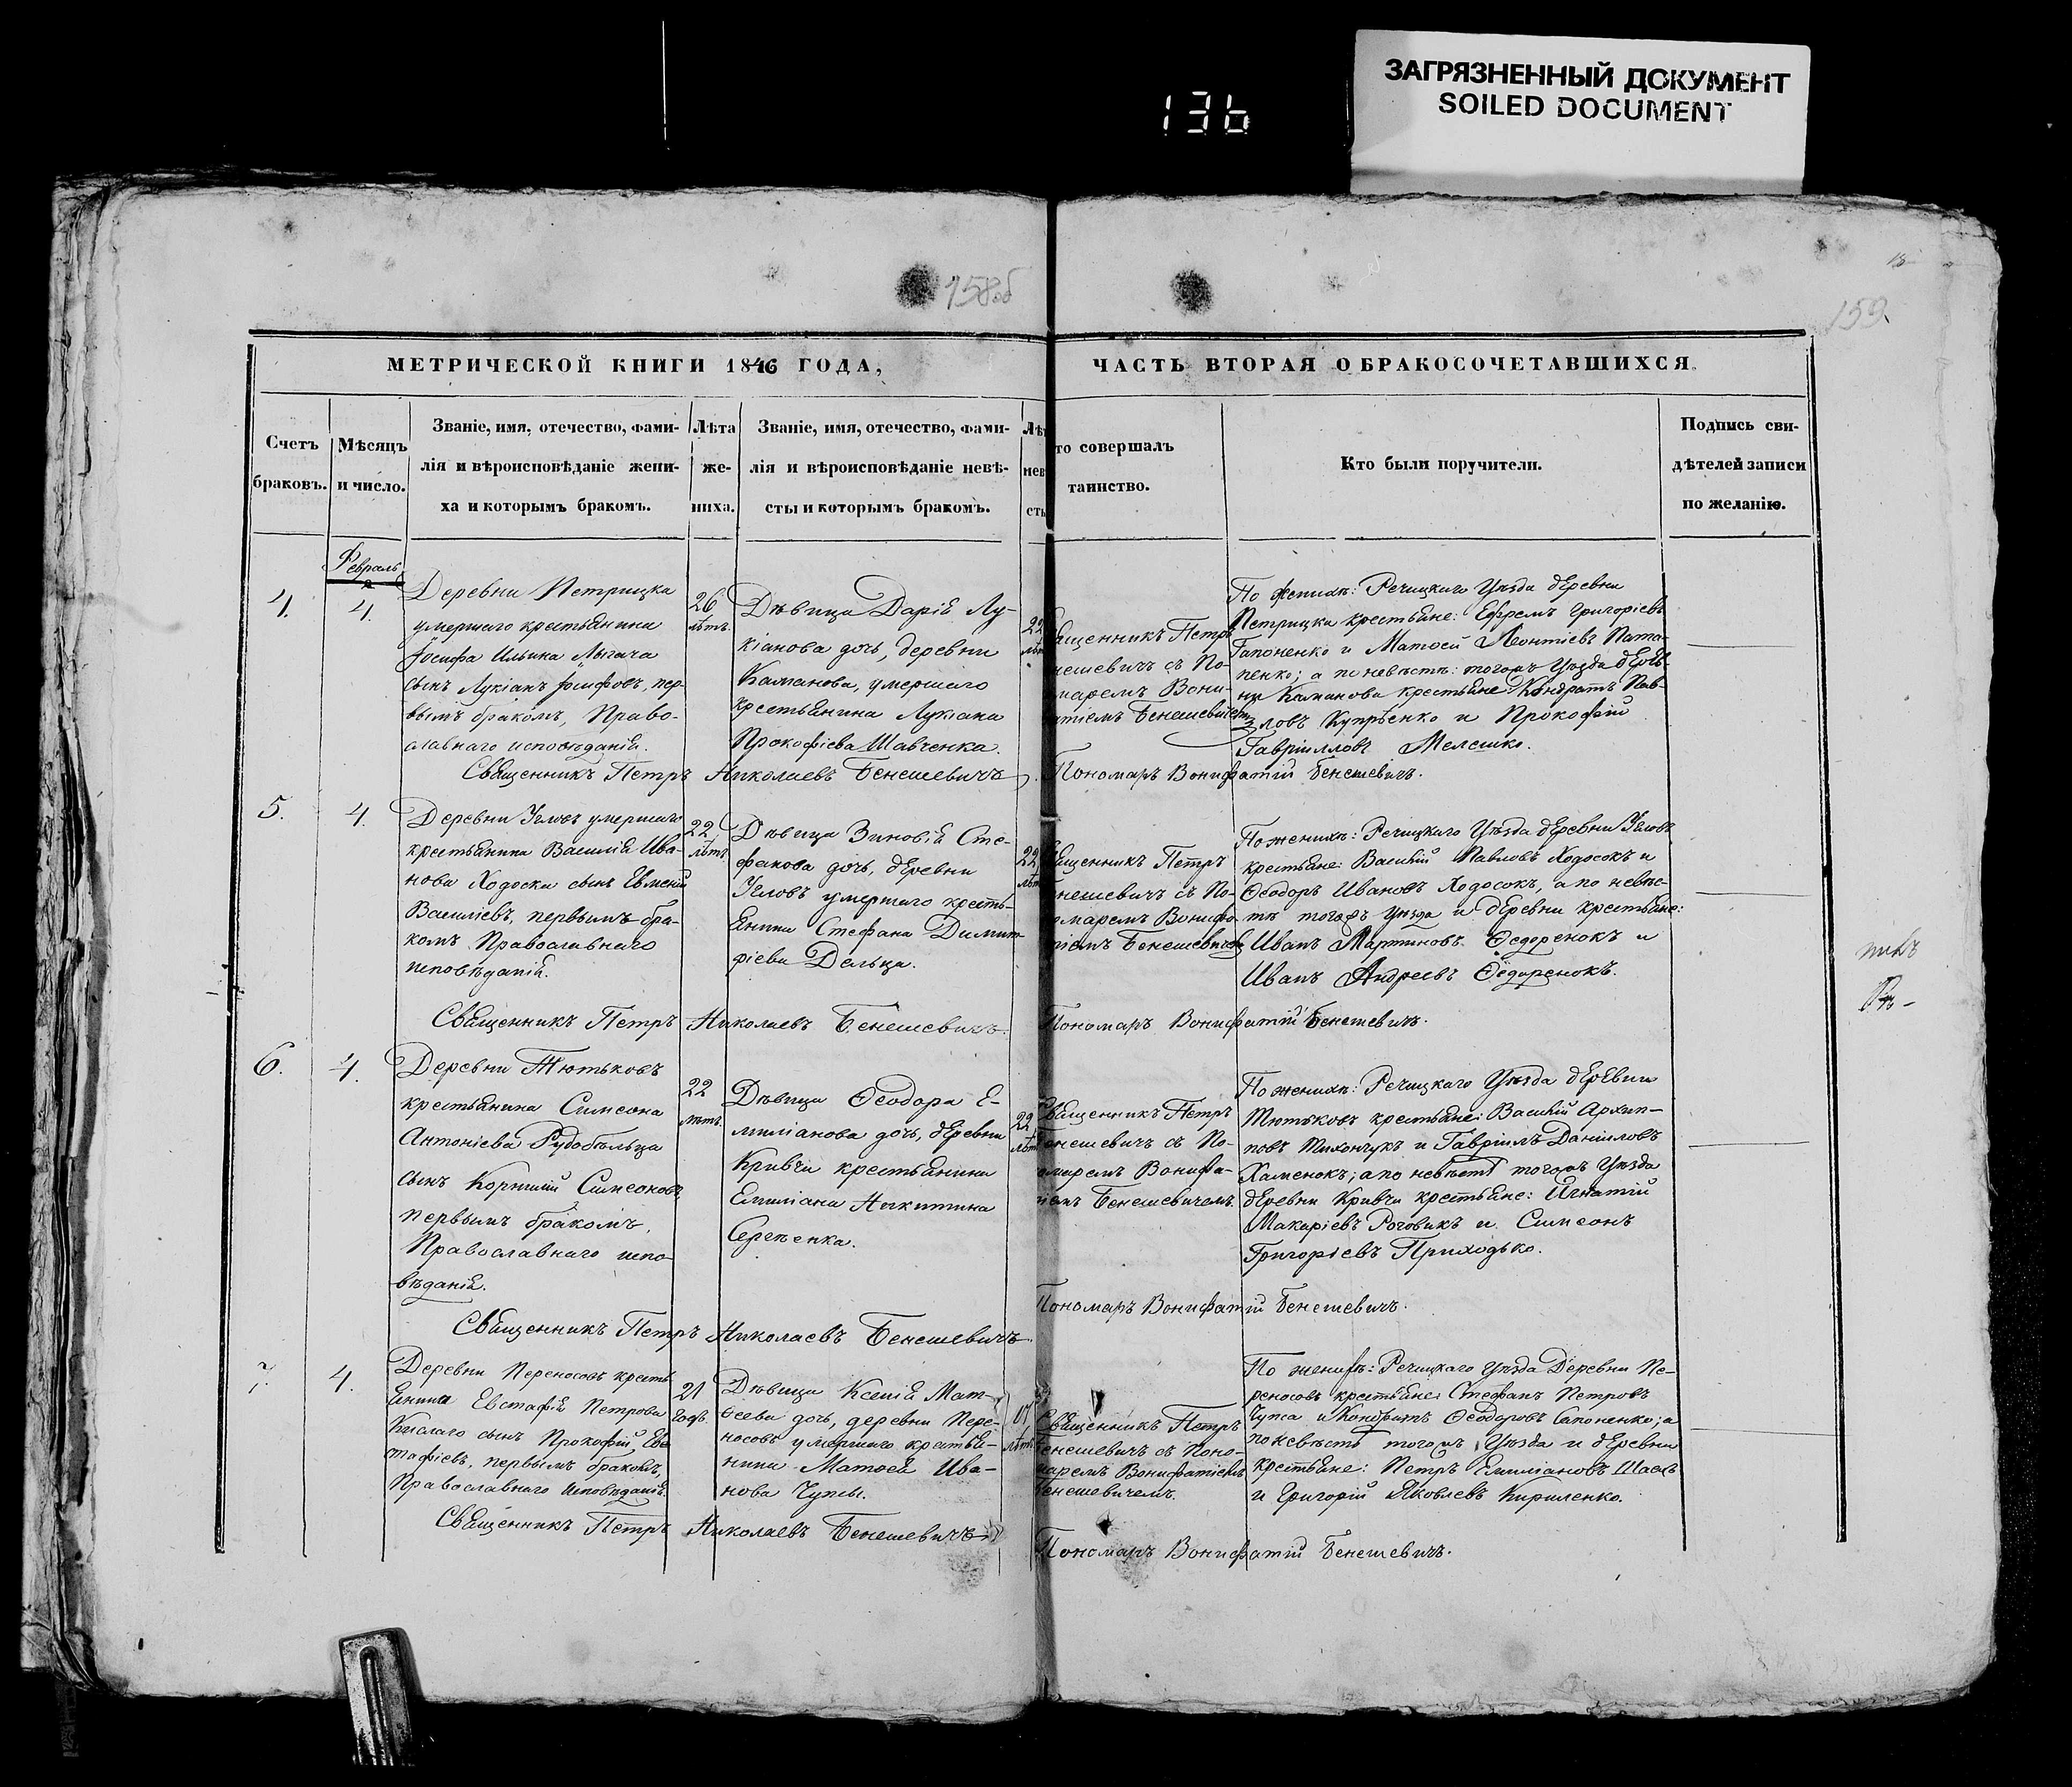 ЗАГРЯЗНЕННЫЙ ДОКУМЕНТ
SOILED DOCUMENT
136
158об
159.
МЕТРИЧЕСКОЙ КНИГИ 1846 ГОДА,
ЧАСТЬ ВТОРАЯ О БРАКОСОЧЕТАВШИХСЯ.
Счетъ
браковъ.
Мѣсяцъ
и число.
Званіе, имя, отечество, фами-
лія и вѣроисповѣданіе жени-
ха и которымъ бракомъ.
Лѣта
же-
ниха.
Званіе, имя, отечество, фами-
лія и вѣроисповѣданіе невѣ-
сты и которымъ бракомъ.
Лѣт
нев
сты
то совершалъ
таинство.
Кто были поручители.
Подпись сви-
дѣтелей записи
по желанію.
Февраль
4.
4.
Деревни Петрицка
умершаго крестьянина
Іосифа Ильина Лыгача
сынъ Лукіанъ Іосифовъ, пер-
вымъ бракомъ, Право-
славнаго исповѣданія.
26
лѣтъ.
Дѣвица Дарія Лу-
кіанова дочь, деревни
Каманова, умершаго
крестьянина Лукіана
Прокофіева Шавченка.
22
лѣт
ященникъ Петръ
нешевичъ съ По-
маремъ Вони-
тіемъ Бенешевичемъ
По женихѣ: Речицкаго Уѣзда деревни
Петрицка крестьяне: Ефремъ Григоріевъ
Гапоненко и Матѳей Леонтіевъ Пата-
пенко; а по невѣстѣ: тогожъ Уѣзда дерев-
ни Каманова крестьяне: Кондратъ Пав-
ловъ Купрѣенко и Прокофій
Гавріиловъ Мелешко.
Священникъ Петръ Николаевъ Бенешевичъ.
Пономаръ Вонифатій Бенешевичъ.
5.
4.
Деревни Угловъ умершаго
крестьянина Василія Ива-
нова Ходоска сынъ Евменій
Василіевъ, первымъ бра-
комъ Православнаго
исповѣданія.
22
лѣтъ
Дѣвица Зиновія Сте-
фанова дочь, деревни
Угловъ умершаго кресть-
янина Стефана Димит-
ріева Дельца.
22
лѣт
ященникъ Петръ
нешевичъ съ По-
омаремъ Вонифа-
тіемъ Бенешевичем
По женихѣ: Речицкаго Уѣзда деревни Угловъ
крестьяне: Василій Павловъ Ходосокъ и
Ѳеодоръ Ивановъ Ходосокъ, а по невѣс-
тѣ тогожъ Уѣзда и деревни крестьяне:
Иванъ Мартиновъ Ѳедоренокъ и
Иванъ Андреевъ Ѳедоренокъ.
Священникъ Петръ Николаевъ Бенешевичъ.
Пономаръ Вонифатій Бенешевичъ.
6.
4.
Деревни Тютьковъ
крестьянина Симеона
Антоніева Рудобѣльца
сынъ Корнилій Симеоновъ
первымъ бракомъ,
Православнаго испо-
вѣданія.
22
лѣтъ.
Дѣвица Ѳеодора Е-
миліанова дочь, деревни
Кривчи крестьянина
Емиліана Никитина
Сергѣенка.
22
лѣт
Священникъ Петръ
Бенешевичъ съ По-
омаремъ Вонифа-
тіемъ Бенешевичемъ.
По женихѣ: Речицкаго Уѣзда деревни
Тютьковъ крестьяне: Василій Архип-
повъ Тихончукъ и Гавріилъ Даніиловъ
Хаменокъ; а по невѣстѣ тогожъ Уѣзда
деревни Кривчи крестьяне: Игнатій
Макаріевъ Роговикъ и Симеонъ
Григоріевъ Приходько.
Пономаръ Вонифатій Бенешевичъ.
Священникъ Петръ Николаевъ Бенешевичъ.
7.
4.
Деревни Переносовъ кресть
янина Евстафія Петрова
Кислаго сынъ Прокофій Ев-
стафіевъ, первымъ бракомъ,
Православнаго исповѣданія.
21
годъ.
Дѣвица Ксенія Мат-
ѳеева дочь, деревни Пере-
носовъ умершаго крестья-
нина Матѳея Ива-
нова Чупсы.
лѣтъ
Священникъ Петръ
Бенешевичъ съ Поно-
маремъ Вонифатіемъ
Бенешевичемъ.
По женихѣ: Речицкаго Уѣзда Деревни Пе-
реносовъ крестьяне: Стефанъ Петровъ
Чупса и Кондратъ Ѳеодоровъ Сапоненко; а
по невѣстѣ тогожъ Уѣзда и деревни
крестьяне: Петръ Емиліановъ
и Григорій Яковлевъ Кириленко.
Священникъ Петръ Николаевъ Бенешевичъ
Пономаръ Вонифатій Бенешевичъ.